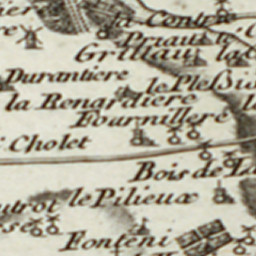 la Contrie
Grillau
la
Durantiere
le Pleßis
la Renardiere
Fournilleré
Cholet
Bois de La
le Pilieux
Fonteni